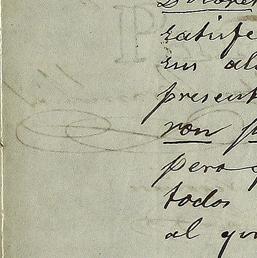 satisfe
en al
present
ron p
pero q
todos
al qu